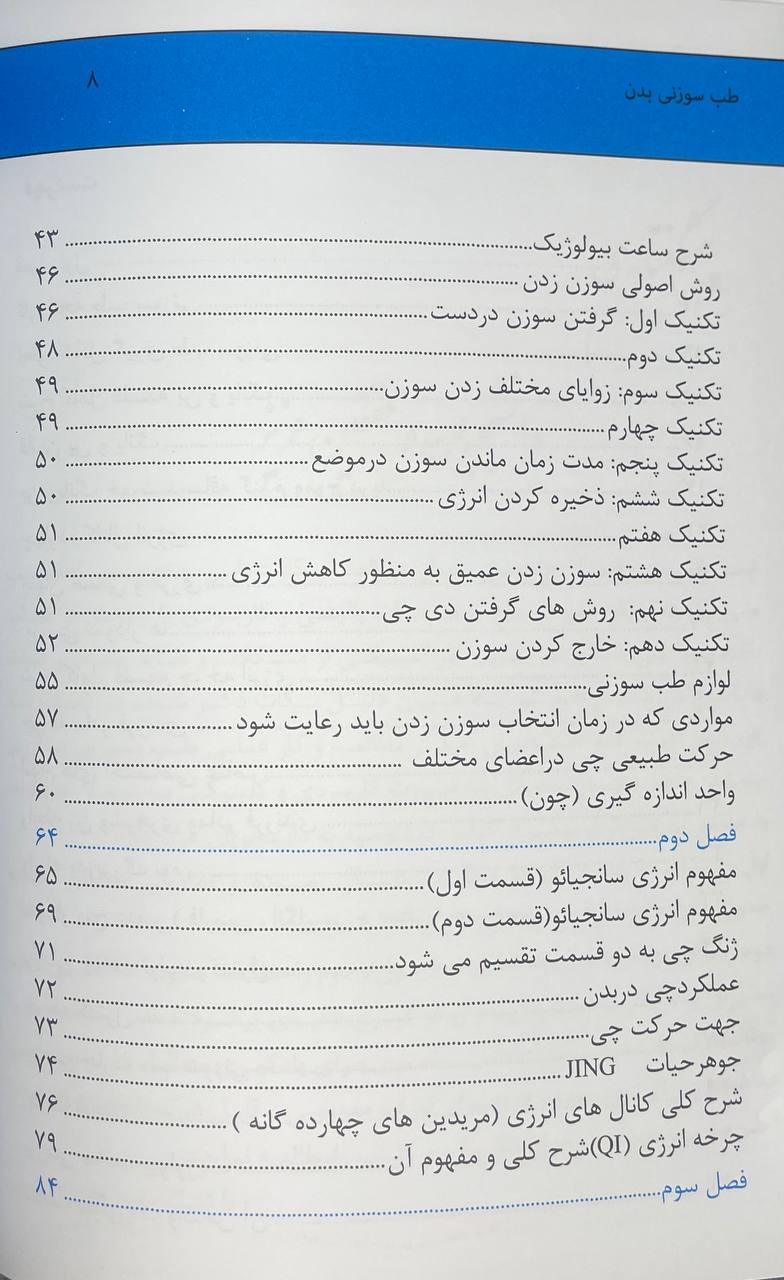 طب سوزنی بدن ۸
شرح ساعت بیولوژیک ۴۳
روش اصولی سوزن زدن ۴۶
تکنیک اول: گرفتن سوزن دردست ۴۶
تکنیک دوم ۴۸
تکنیک سوم: زوایای مختلف زدن سوزن ۴۹
تکنیک چهارم ۴۹
تکنیک پنجم: مدت زمان ماندن سوزن درموضع ۵۰
تکنیک ششم: ذخیره کردن انرژی ۵۰
تکنیک هفتم ۵۱
تکنیک هشتم: سوزن زدن عمیق به منظور کاهش انرژی ۵۱
تکنیک نهم: روش های گرفتن دی چی ۵۱
تکنیک دهم: خارج کردن سوزن ۵۲
لوازم طب سوزنی ۵۵
مواردی که در زمان انتخاب سوزن زدن باید رعایت شود ۵۷
حرکت طبیعی چی دراعضای مختلف ۵۸
واحد اندازه گیری (چون) ۶۰
فصل دوم ۶۴
مفهوم انرژی سانجیائو (قسمت اول) ۶۵
مفهوم انرژی سانجیائو(قسمت دوم) ۶۹
ژنگ چی به دو قسمت تقسیم می شود ۷۱
عملکردچی دربدن ۷۲
جهت حرکت چی ۷۳
جوهرحیات JING ۷۴
شرح کلی کانال های انرژی (مریدین های چهارده گانه ) ۷۶
چرخه انرژی (QI)شرح کلی و مفهوم آن ۷۹
فصل سوم ۸۴